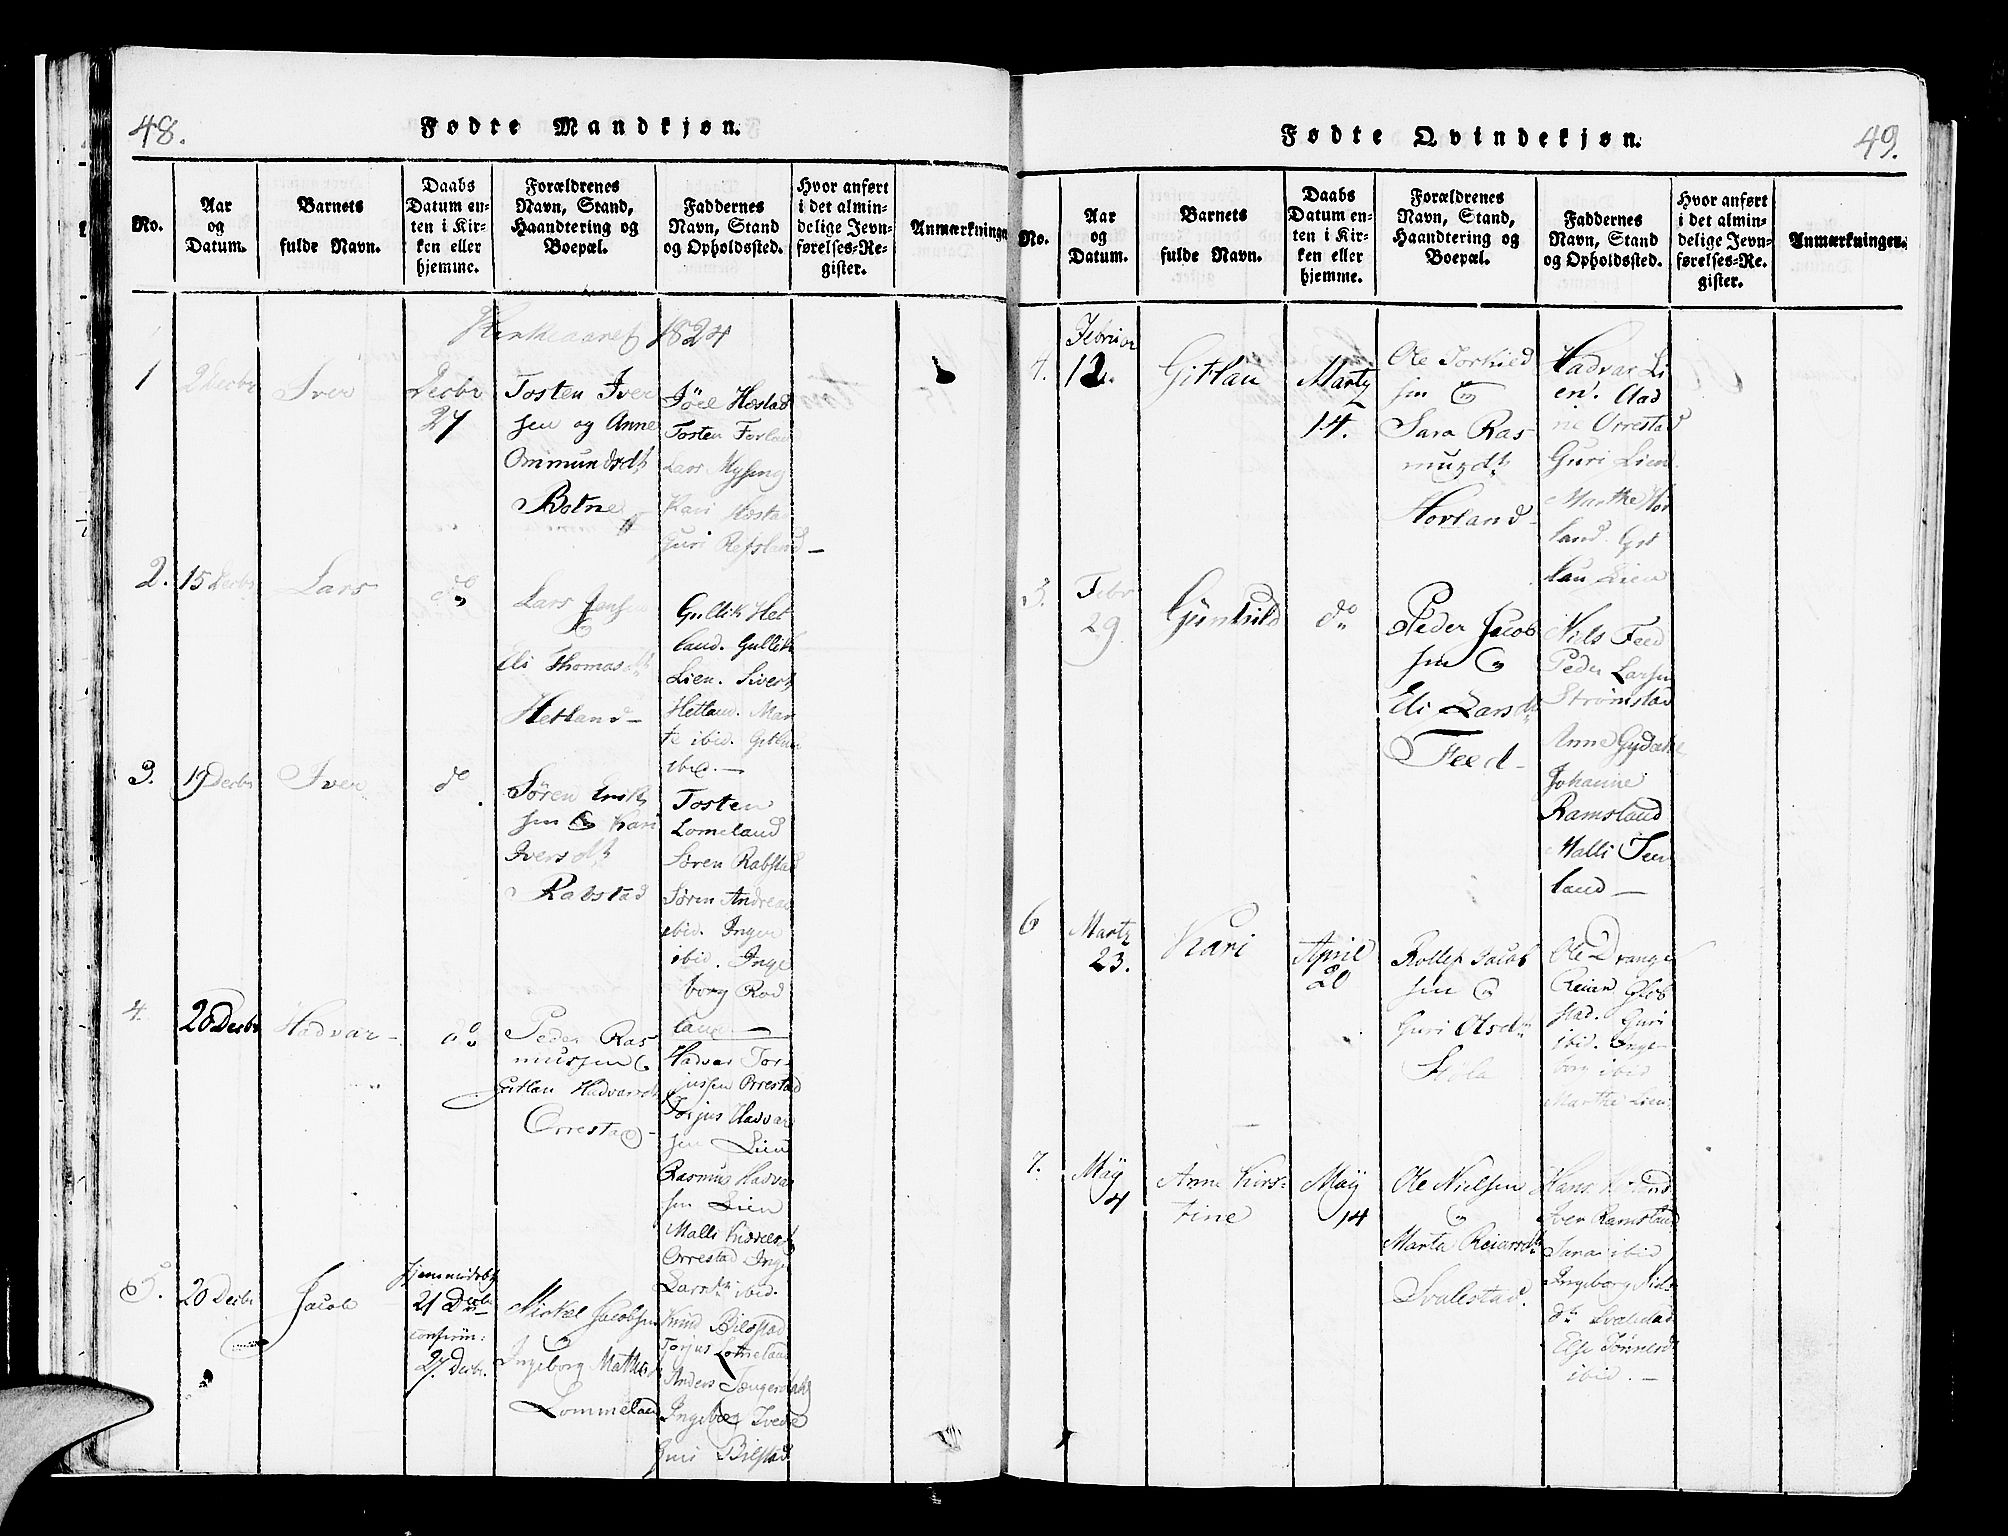 48.
Fødte Mandkjøn.
No.
Aar
og
Datum.
Barnets
fulde Navn.
Daabs
Datum en-
ten i Kir-
ken eller
hjemme.
Forældrenes
Navn, Stand,
Haandtering og
Boepæl.
Faddernes
Navn, Stand
og Opholdssted.
Hvor anført
i det almin-
delige Jevn-
førelses-Re-
gister.
Anmærkninger
Kirkeaaret 1824
1
2 Decbr
Iver
Decbr
27
Tosten Iver
sen og Anne
Ommundsdt
Botne
Jöel Hæstad
Tosten Forland
Lars Mysing
Kari Hæstad
Guri Refsland
2.
15 Decbr
Lars
do
Lars Jansen
&
Eli Thomasdt
Hetland
Gullik Het
land. Gullik
Lien. Sivert
Hetland. Mar
te ibid. Gitlau
ibid.
3.
19 Decbr
Iver
do
Søren Erik
sen & Kari
Iversdt
Rabstad
Tosten
Lomeland
Søren Rabstad
Søren Andreas
ibid. Inger
ibid. Inge
borg Rod
land
4.
20 Decbr
Hadvar
do
Peder Ras
mussen &
Gitlau Hadvarsdt
Orrestad
Hadvar Tor-
jussen Orrestad
Torjus Hadvar
sen Lien
Rasmus Hadvar
sen Lien
Malli
Orrestad Inge
Larsdt ibid.
5.
20 Decbr
Jacob
hjemmedøbt
21 Decbr
confirm:
27 Decbr.
Mickel Jacobsen
&
Ingeborg Mathis
Lommeland
Knud Bilstad
Torjus Lomeland
Anders
Ingeborg Tvede
Guri Bilstad
49.
Fødte Qvindekjøn.
No.
Aar
og
Datum.
Barnets
fulde Navn.
Daabs
Datum en-
ten i Kir-
ken eller
hjemme.
Forældrenes
Navn, Stand,
Haandtering og
Boepæl.
Faddernes
Navn, Stand
og Opholdssted.
Hvor anført
i det almin-
delige Jevn-
førelses-Re-
gister.
Anmærkninger.
4.
Februar
12.
Gitlau
Martz
14.
Ole Torkild
sen &
Sara Ras
musdt
Hovland
Hadvar Li
en. Aad
ne Orrestad
Guri Lien
Marthe Hov
land. Git
lau Lien
5.
Febr
29
Gunhild
do
Peder Jacob
sen &
Eli Larsdt
Feed
Nils Feed
Peder Larsen
Strømstad
Anne Gydal
Johanne
Ramsland
Malli
land
6
Martz
23.
Kari
April
20
Rollef Jacob
sen &
Guri Olsdt
Ole Drange
Reier
stad. Guri
ibid. Inge
borg ibid
Marthe Lien
7.
May
4
Anne Kirs-
tine
May
14
Ole Nielsen
&
Marta Reiarsdt
Svalestad.
Hans
Iver Ramsland
ibid
Ingeborg Niels
dt Svalestad
Else Tønnesd
ibid.